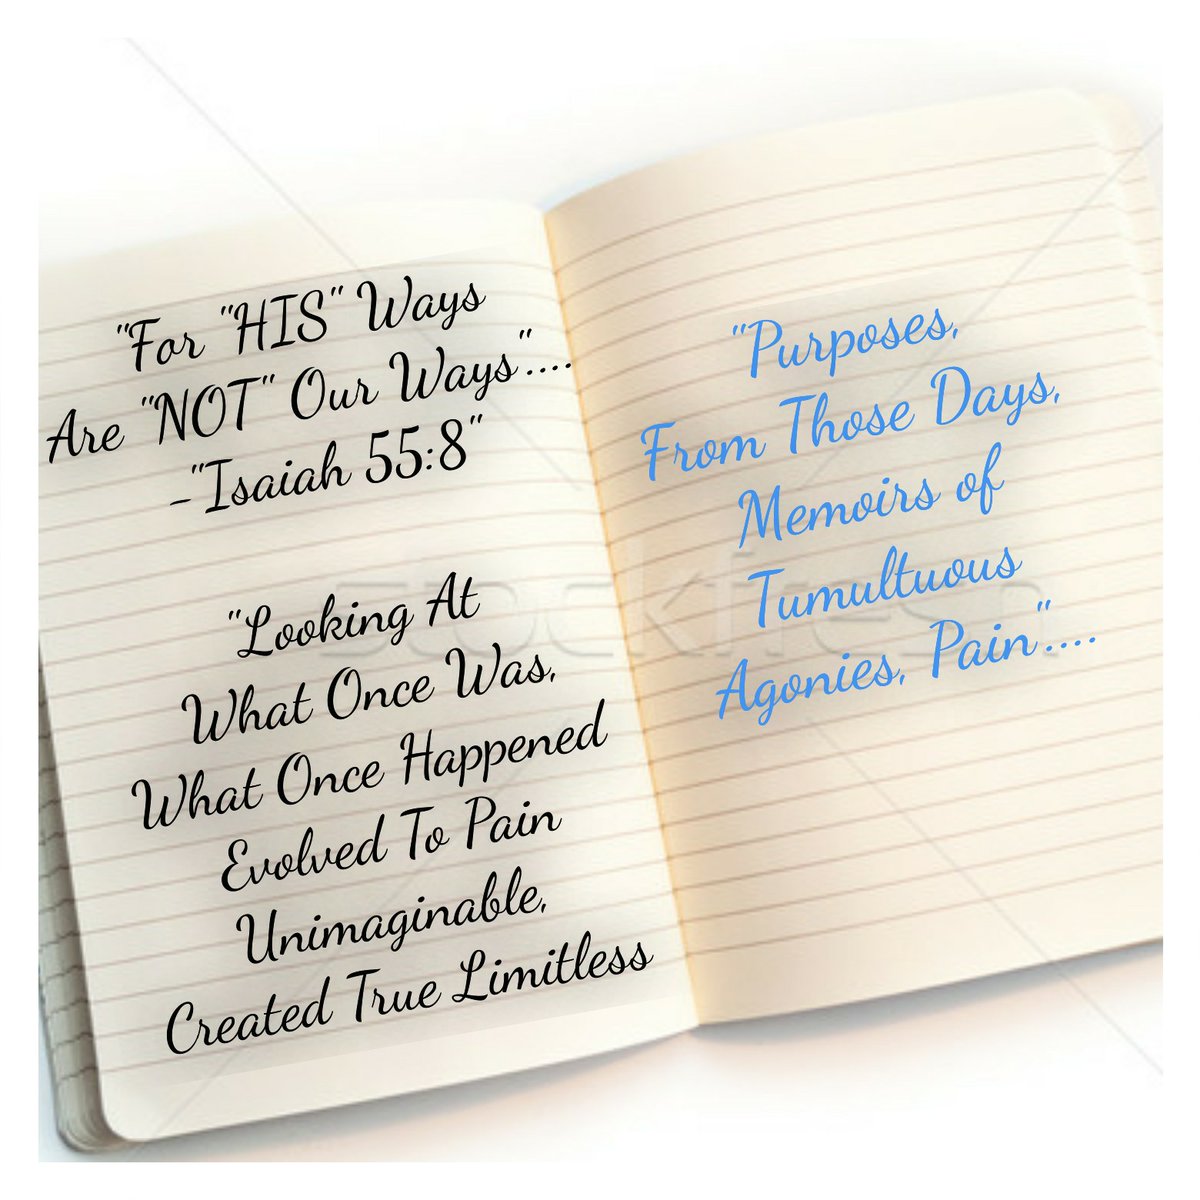 "For "HIS" Ways
Are "NOT" Our Ways"....
-"Isaiah 55:8"
"Looking At
What Once Was,
What Once Happened
Evolved To Pain
Unimaginable,
Created True Limitless
"Purposes,
From Those Days,
Memoirs of
Tumultuous
Agonies, Pain"....
stockfresh